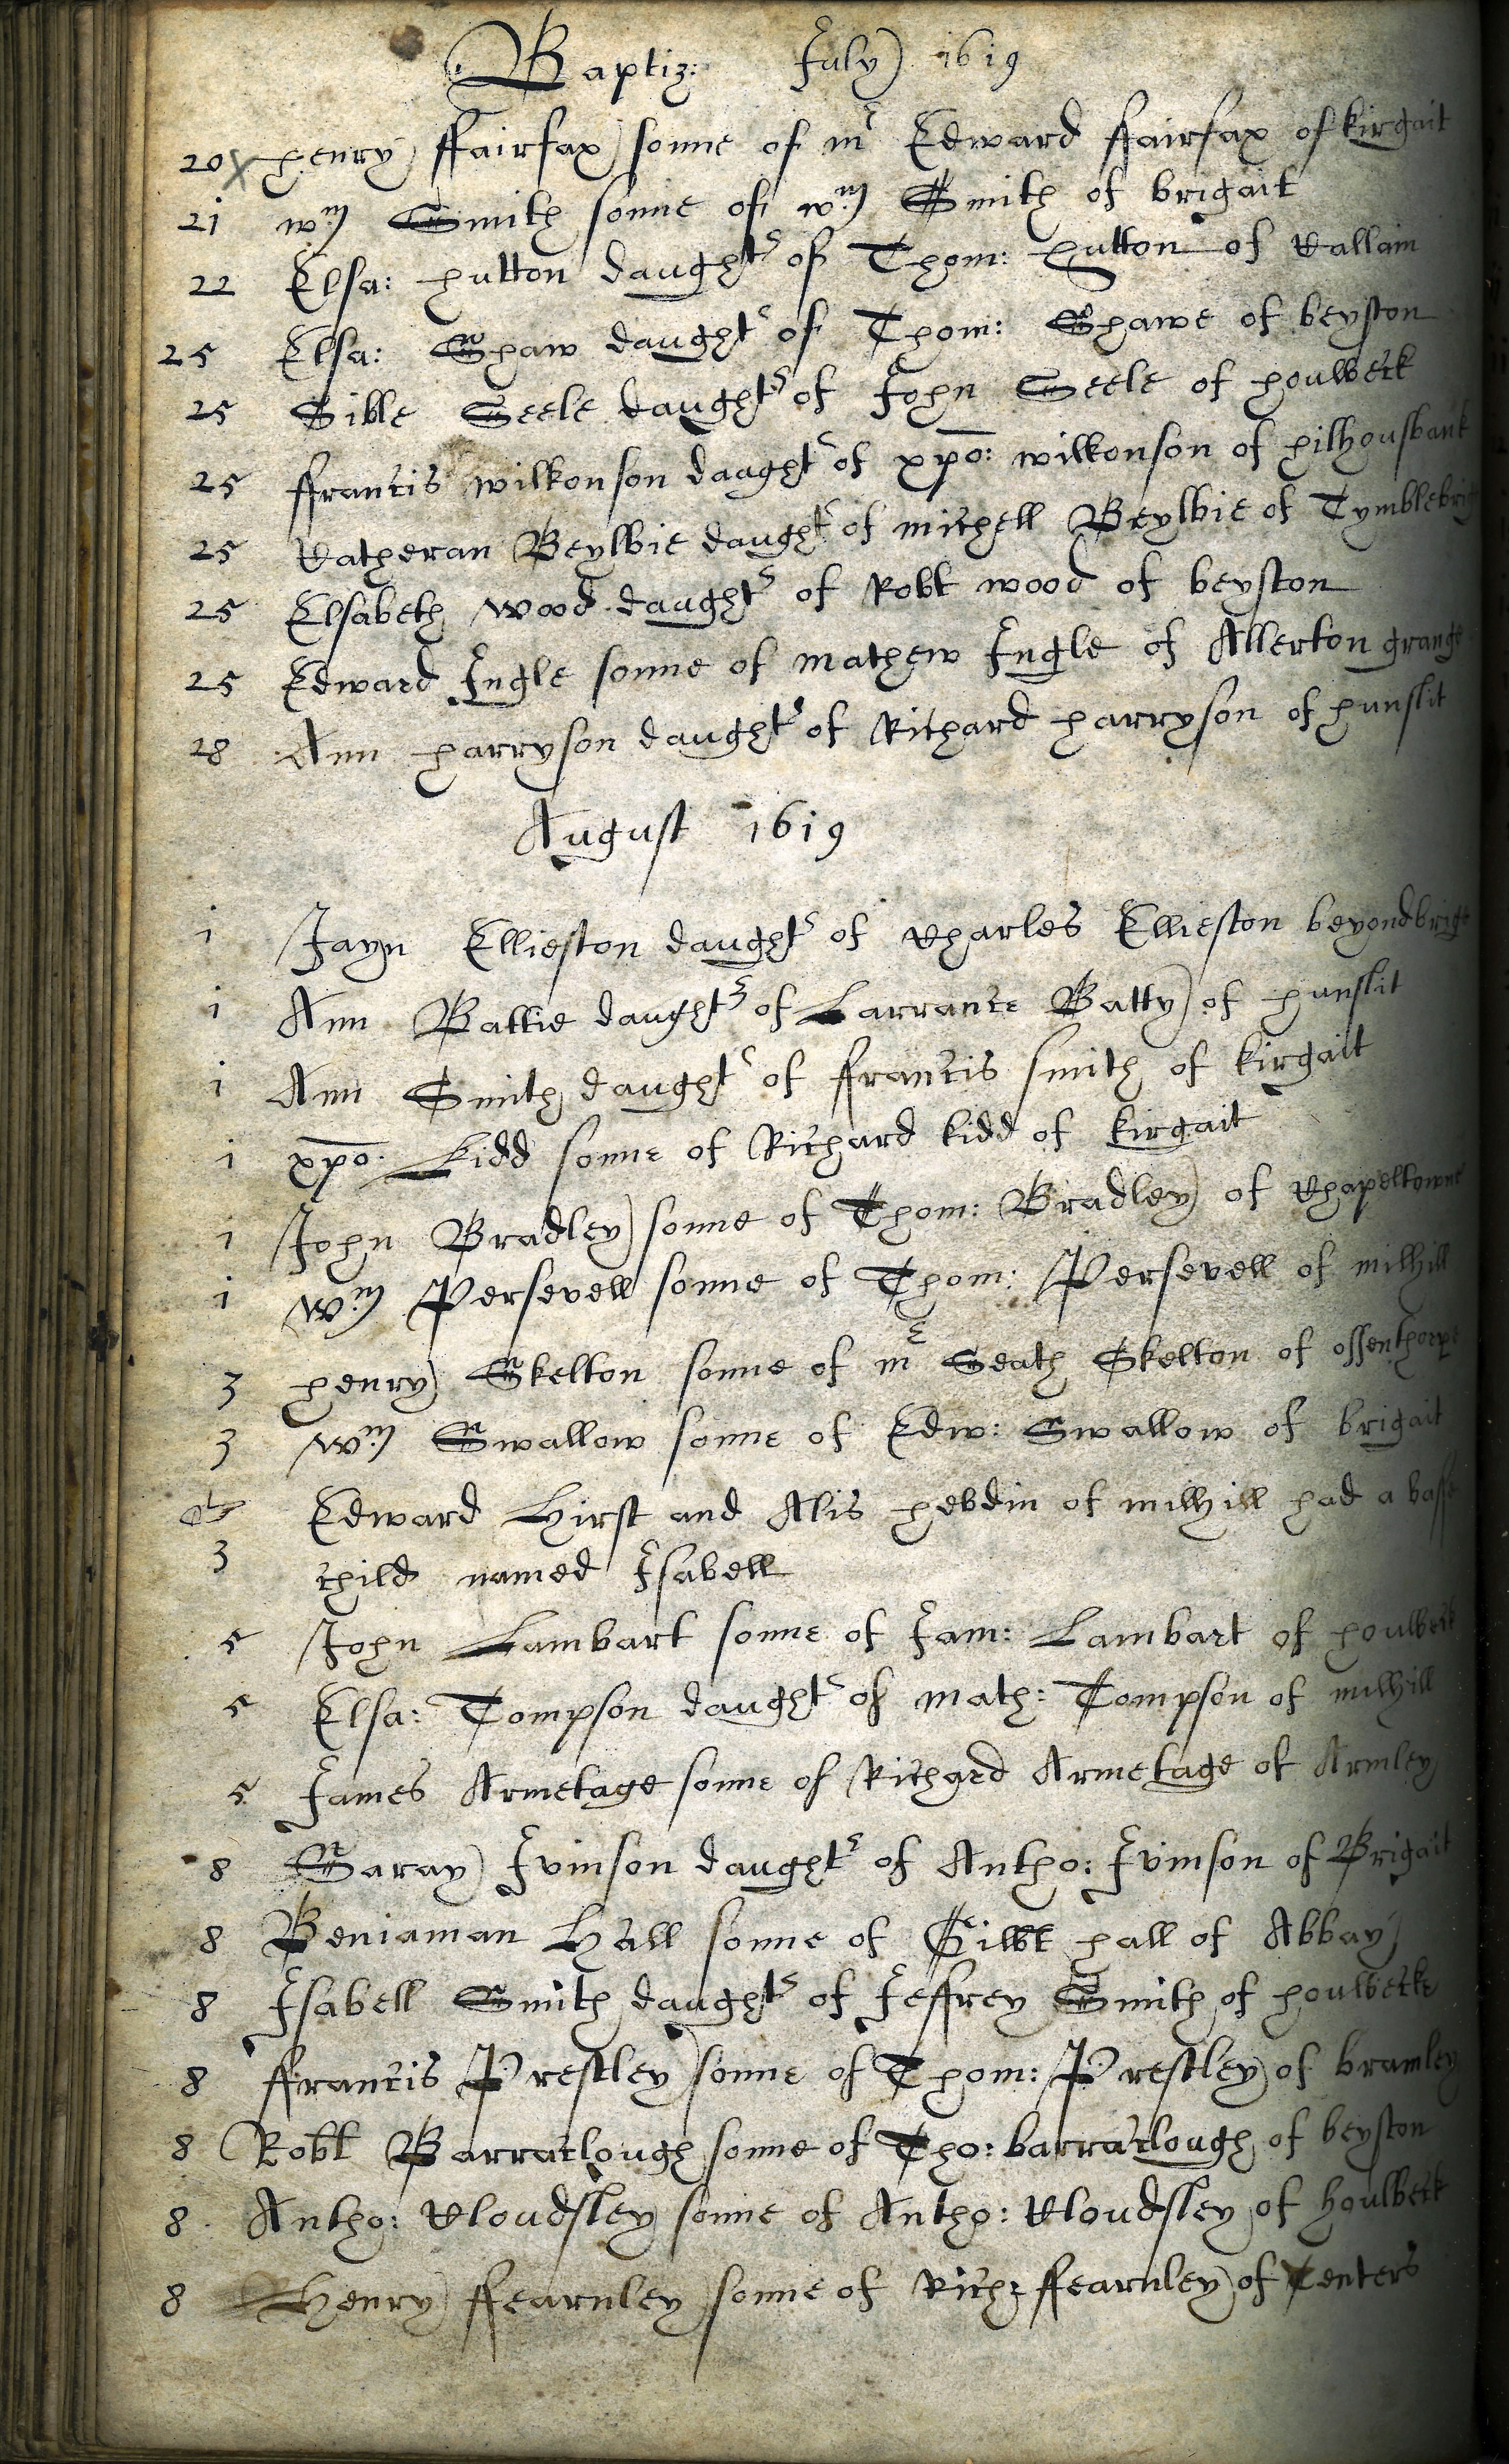 Baptiz: July 1619
20 x henry ffairfax sonne of mr Edward ffairfax of kirgait
21 wm Smith sonne of wm Smith of brigait
22 Elsa: hutton daughtr of Thom: hutton of Kallain
25 Elsa: Shaw daughtr of Thom: Shawe of beyston
25 Sible Seele daughtr of John Seele of houlbeck
25 ffrancis wilkonson daughtr of xpo: wilkonson of hilhousbank
25 Katheran Beylbie daughtr of michell Beylbie of Tymblebrig
25 Elsabeth wood daughtr of Robt wood of beyston
25 Edward Ingle sonne of mathew Ingle of Allerton grange
28 Ann harryson daughtr of Richard harryson of hunslit
August 1619
1 Jayn Ellieston daughtr of Charles Ellieston beyondbrige
1 Ann Battie daughtr of Larrance Batty of hunslit
1 Ann Smith daughtr of ffrancis smith of kirgait
1 xpo: kidd sonne of Richard kidd of kirgait
1 John Bradley sonne of Thom: Bradley of Chapeltowne
1 Wm Persevell sonne of Thom: Persevell of milhill
3 henry Skelton sonne of mr Seath Skelton of ossenthorpe
3 Wm Swallow sonne of Edw: Swallow of brigait
Edward Hirst and Alis hebdin of milhill had a base
3 child named Isabell
5 John Lambart sonne of Jam: Lambart of houlbeck
5 Elsa: Tompson daughtr of math: Tompson of milhill
5 James Armetage sonne of Richard Armetage of Armley
8 Saray Jvinson daughtr of Antho: Jvinson of Brigait
8 Beniaman Hall sonne of Gilbt hall of Abbay
8 Isabell Smith daughtr of Jeffrey Smith of houlbecke
8 ffrancis Prestley sonne of Thom: Prestley of bramley
8 Robt Barraclough sonne of Tho: barraclough of beyston
8 Antho: Cloudsley sonne of Antho: Cloudsley of houlbeck
8 Henry ffearnley sonne of Rich: ffearnley of Tenters